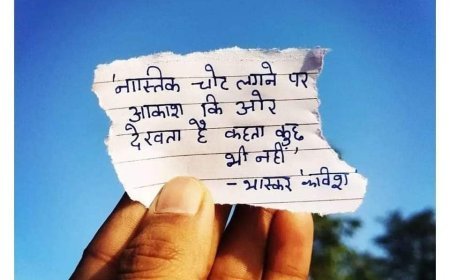 'नास्तिक चोट लगने पर
आकाश कि ओर
देखता है कहता कुछ
भी नहीं'
- भास्कर 'कविश'